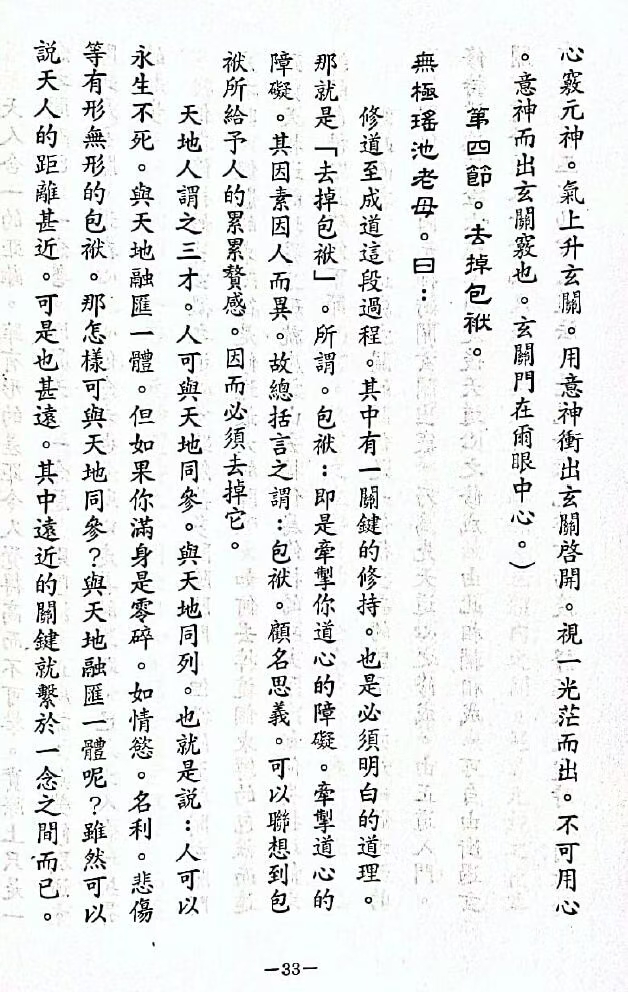 心竅元神。氣上升玄關。用意神衝出玄關啓開。視一光茫而出。不可用心
。意神而出玄關竅也。玄關門在爾眼中心。）
第四節。去掉包袱。
無極瑤池老母。曰：
修道至成道這段過程。其中有一關鍵的修持。也是必須明白的道理。
那就是「去掉包袱」。所謂。包袱：即是牽掣你道心的障礙。牽掣道心的
障礙。其因素因人而異。故總括言之謂：包袱。顧名思義。可以聯想到包
袱所給予人的累累贅感。因而必須去掉它。
天地人謂之三才。人可與天地同參。與天地同列。也就是說：人可以
永生不死。與天地融匯一體。但如果你滿身是零碎。如情慾。名利。悲傷
等有形無形的包袱。那怎樣可與天地同參？與天地融匯一體呢？雖然可以
說天人的距離甚近。可是也甚遠。其中遠近的關鍵就繫於一念之間而已。
—33—